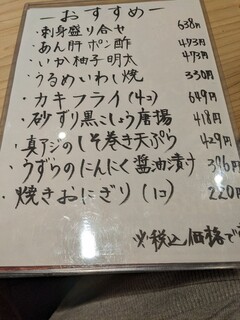 ーおすすめー
・刺身盛り合セ 638円
・あん肝ポン酢 473円
・いか柚子明太 473円
・うるめいわし焼 330円
・カキフライ(4コ) 649円
・砂ずり黒こしょう唐揚 418円
・真アジのしそ巻き天ぷら 429円
・うずらのにんにく醤油漬け 396円
・焼きおにぎり(1コ) 220円
※税込価格で